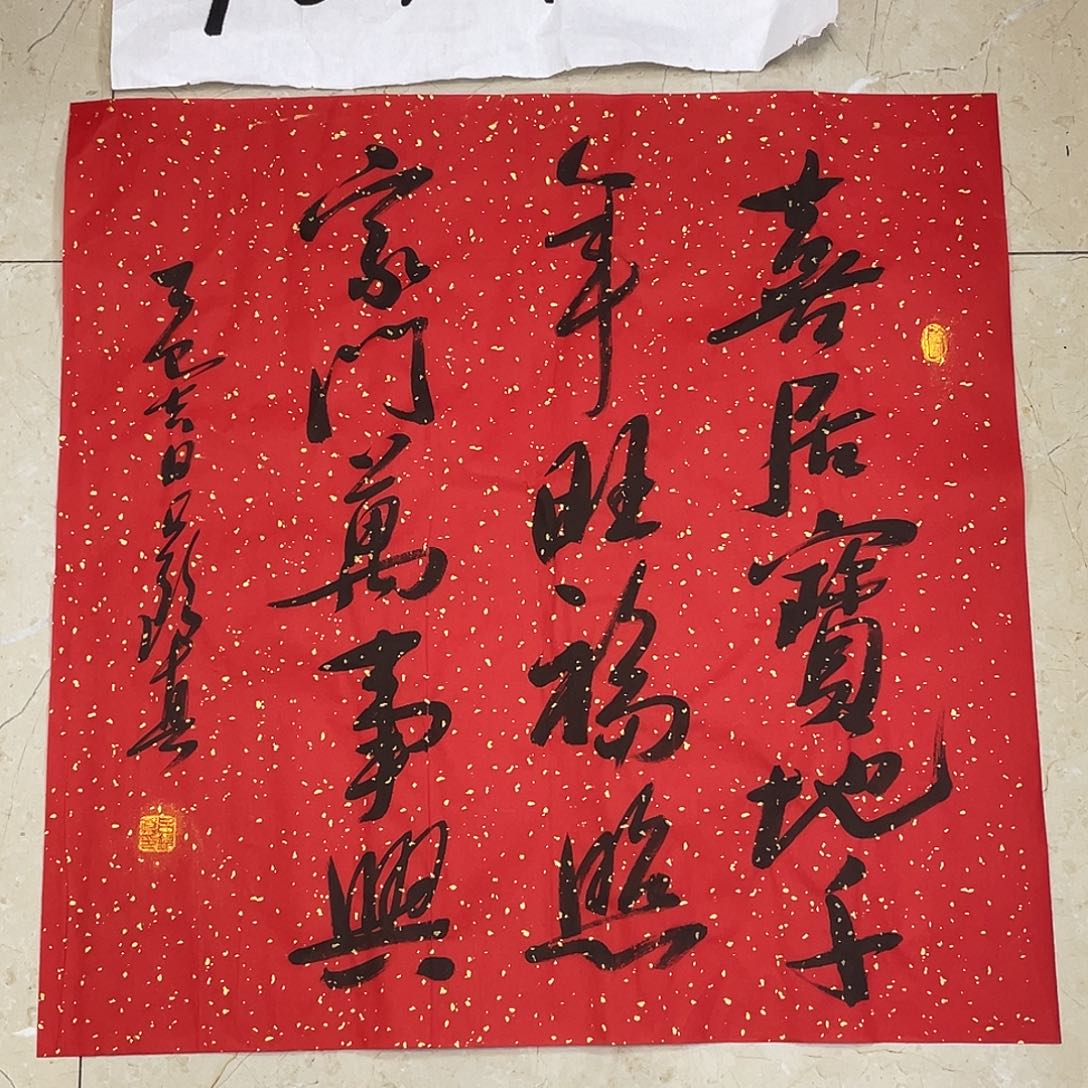 喜居寶地千
年旺福照
家門萬事興
乙巳吉日